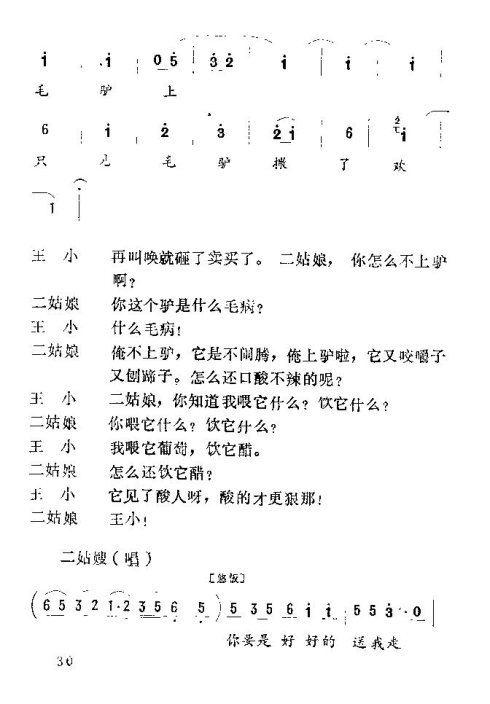 i i 0 5 3 2 i i i
毛 驴 上
6 i 2 3 2·i 6 i
只 见 毛 驴 撒 了 欢
1
王 小 再叫唤就砸了卖买了。二姑娘，你怎么不上驴
啊？
二姑娘 你这个驴是什么毛病？
王 小 什么毛病！
二姑娘 俺不上驴，它是不闹腾，俺上驴啦，它又咬嚼子
又刨蹄子。怎么还口酸不辣的呢？
王 小 二姑娘，你知道我喂它什么？饮它什么？
二姑娘 你喂它什么？饮它什么？
王 小 我喂它葡萄，饮它醋。
二姑娘 怎么还饮它醋？
王 小 它见了酸人呀，酸的才更狠那！
二姑娘 王小！
二姑嫂（唱）
(6 5 3 2 1·2 3 5 6 5) 5 3 5 6 i i 5 5 3·0
你要是 好 好的 送我走
30